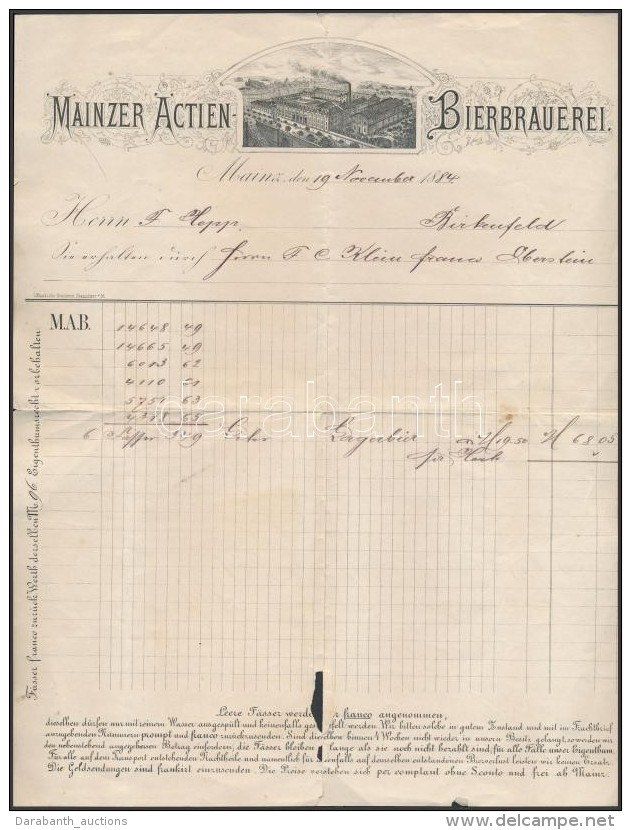 MAINZER ACTIEN-BIERBRAUEREI.
Mainz, den 19 November 1884
Herrn F Hepp. Birkenfeld
Sie erhalten durch Herrn F. C. Klein franco Oberstein
M.A.B.
14648 49
14665 49
6013 62
4110
5759 63
65
6 Fässer Lagerbier 19.50 M 68.05
Fässer franco zurück Werth derselben M. 96 Eigenthumsrecht vorbehalten
Leere Fässer werd r franco angenommen,
dieselben dürfen nur mit reinem Wasser ausgespült und keinenfalls ges felt werden Wir bitten solche in gutem Zustand und mit im Frachtbrief
anzugebenden Nummern prompt und franco zurückzusenden. Sind dieselben binnen 4 Wochen nicht wieder in unsern Besitz gelangt, so werden wir
den nebenstehend angegebenen Betrag einfordern, die Fässer bleiben lange als sie noch nicht bezahlt sind, für alle Fälle unser Eigenthum.
Für alle auf dem Transport entstehenden Nachtheile und namentlich für enfalls auf demselben entstandenen Bierverlust leisten wir keinen Ersatz.
Die Geldsendungen sind frankirt einzusenden. Die Preise verstehen sich per comptant ohne Sconto und frei ab Mainz.
darabanth
Darabanth_auctions
delcampe.net